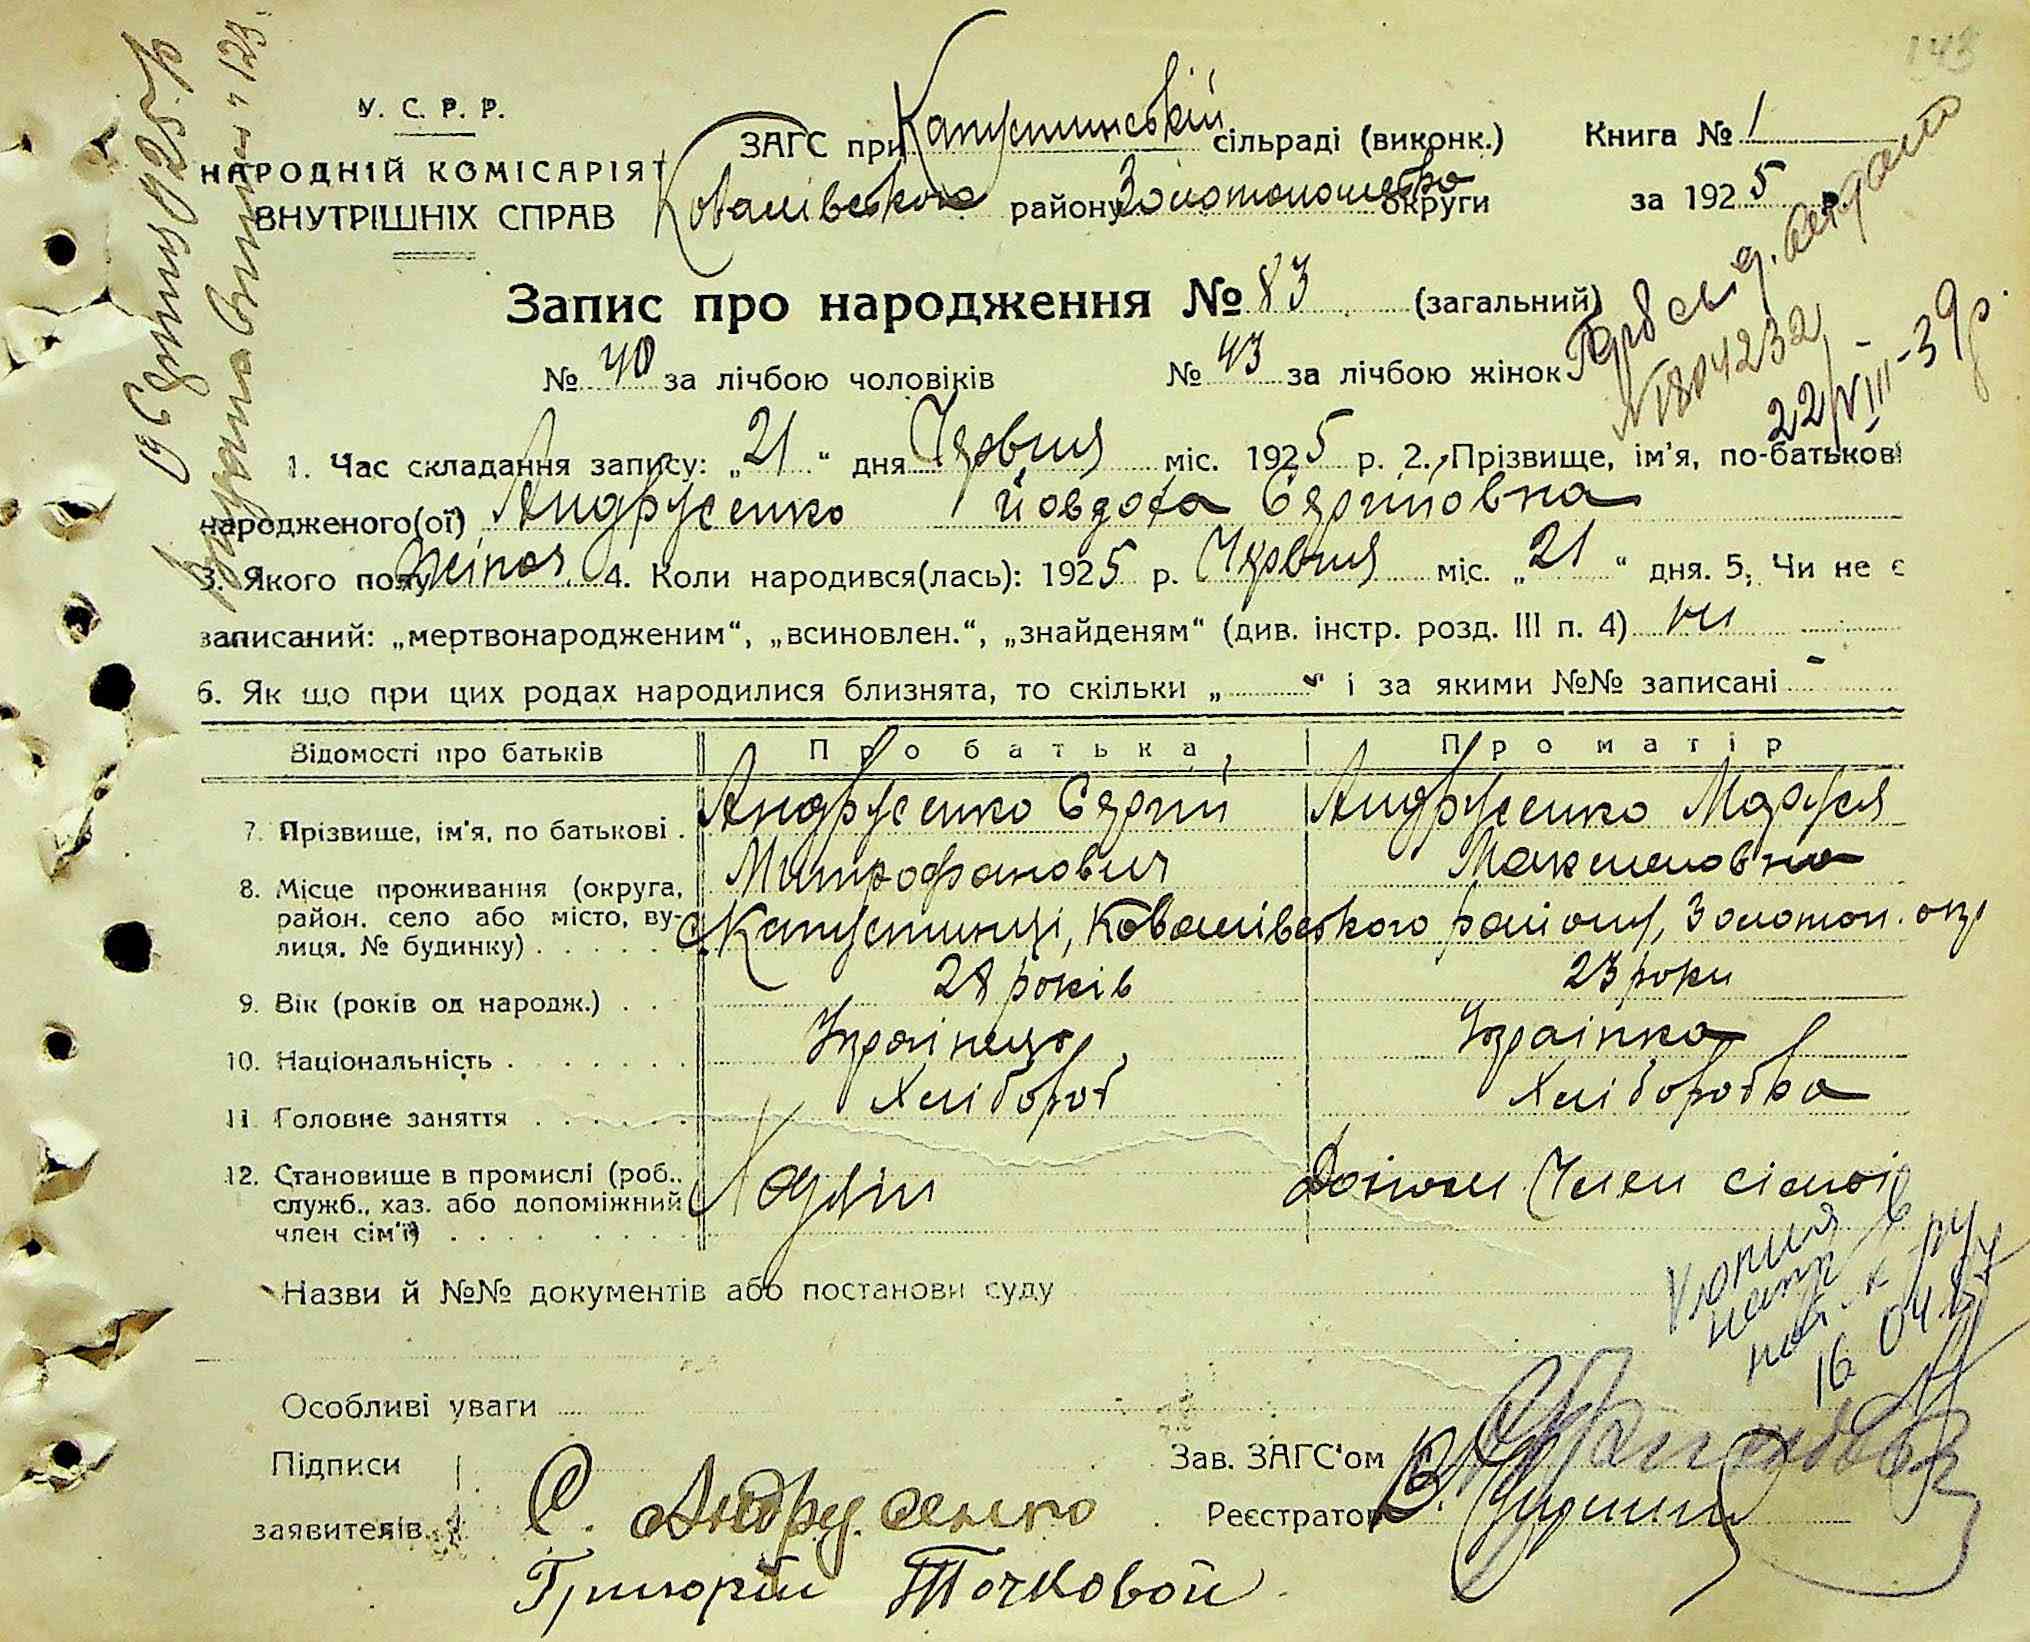 148
У. С. Р. Р.
НАРОДНІЙ КОМІСАРІЯТ
ВНУТРІШНІХ СПРАВ
ЗАГС при Капустинській сільраді (виконк.)
Ковалівського району Золотоношської округи
Книга № 1
за 1925 р.
Запис про народження № 83 (загальний)
№ 40 за лічбою чоловіків № 43 за лічбою жінок
№ 804232
22/VIII-39 р.
1. Час складання запису: „21“ дня Червня міс. 1925 р. 2. Прізвище, ім'я, по-батькові
народженого(ої) Андрусенко Йовдоха Сергіївна
3. Якого полу жіноч. 4. Коли народився(лась): 1925 р. Червня міс. „21“ дня. 5. Чи не є
записаний: „мертвонародженим“, „всиновлен.“, „знайденям“ (див. інстр. розд. III п. 4) ні
6. Як що при цих родах народилися близнята, то скільки „ - “ і за якими №№ записані -
Відомості про батьків Про батька Про матір
7. Прізвище, ім'я, по батькові . Андрусенко Сергій Митрофанович Андрусенко Маруся Максимовна
8. Місце проживання (округа,
район, село або місто, ву-
лиця, № будинку) . . . . . с. Капустинці, Ковалівського району, Золотон. окр
9. Вік (років од народж.) . . 28 років 23 роки
10. Національність . . . . . . . Українець Українка
11. Головне заняття . . . . . . Хлібороб Хліборобка
12. Становище в промислі (роб.,
служб., хаз. або допоміжний
член сім'ї) . . . . . . . . Хазяїн Допом. Член сімьї
Назви й №№ документів або постанови суду
Копия
16 04
Особливі уваги
Підписи
заявителів
С. Андрусенко
Григорій Точковой
Зав. ЗАГС'ом
Реєстратор